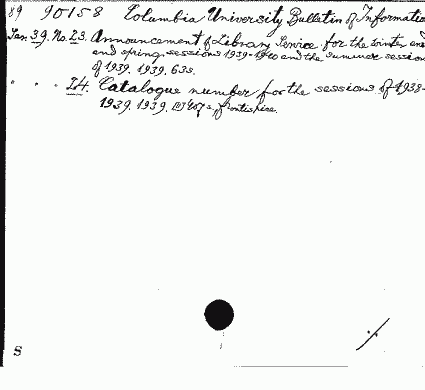 89 90158 Columbia University Bulletin of Informatio
Jan. 39. No. 23. Announcement of Library Service for the winter and
and spring sessions 1939-1940 and the summer session
of 1939. 1939. 63s.
" " " 24. Catalogue number for the sessions of 1938-
1939. 1939. frontispiece.
S